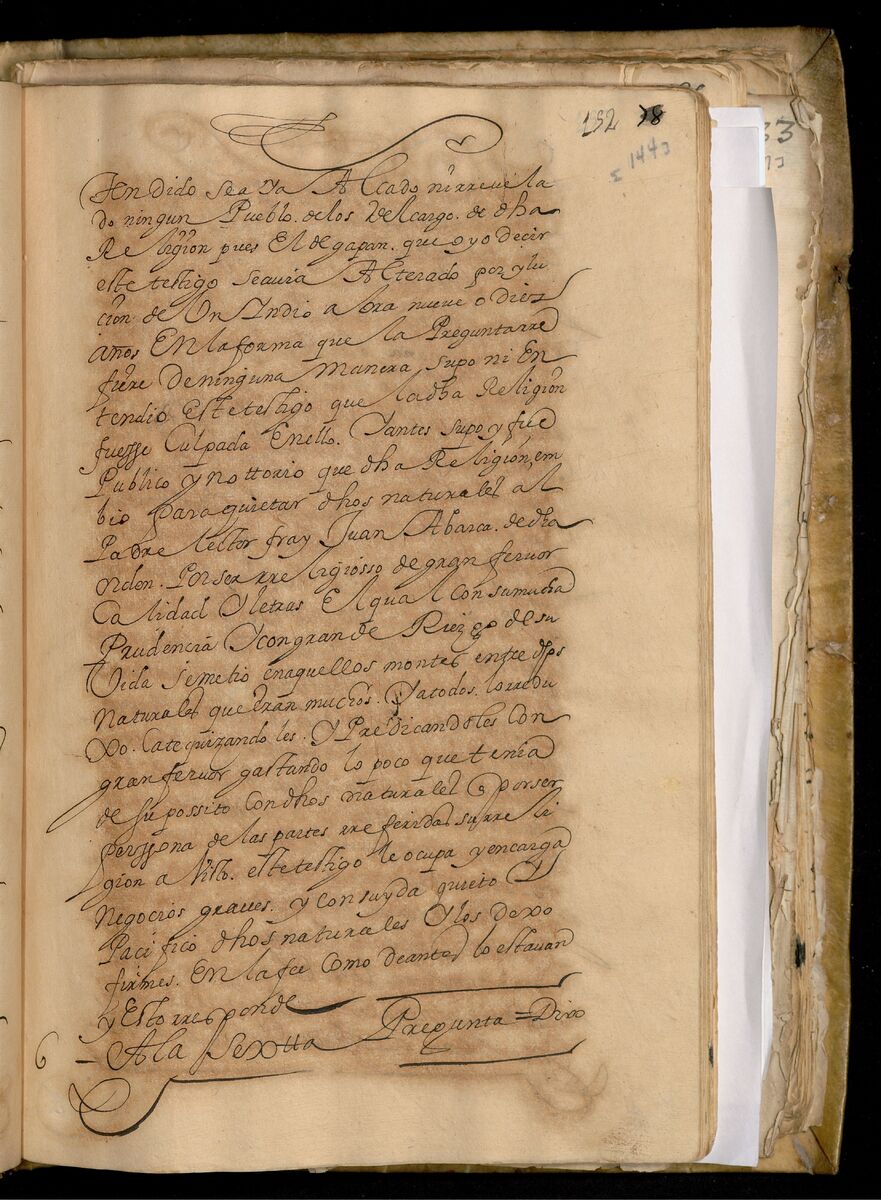 132 38
1443
tendido sea ya Alcado ni rrevela
do ningun Pueblo. de los del cargo. de dha
Religion pues El de gapan. que oyo decir
este testigo seavia Alterado por ynlu
cion de Un Indio abra nueve o diez
años En la forma que la Pregunta rre
fiere De ninguna manera supo ni En
tendio Este testigo que la dha Religion
fuesse Culpada En ello. Y antes supo y fue
Publico y nottorio que dha Religion, em
bio para quietar dhos naturales al
Padre letor fray Juan Abarca. de dha
orden. Por ser rreligiosso de gran fervor
Calidad Y letras El qual con su mucha
Prudencia Y con grande Riezgo de su
Vida se metio en aquellos montes entre dhos
Naturales que eran muchos. Y a todos. los rredu
xo. Catequizandoles. Y Predicandoles Con
gran fervor gastando lo poco que tenia
de su possito con dhos naturales y por ser
perssona de las partes rreferidas su rreli
gion a Visto. este testigo le ocupa y encarga
Negocios graves. y con su yda quieto Y
Pacifico dhos naturales Y los dexo
firmes. En la fee Como de antes lo estavan
y Esto rresponde
6 – A la Sextta Pregunta = Dixo